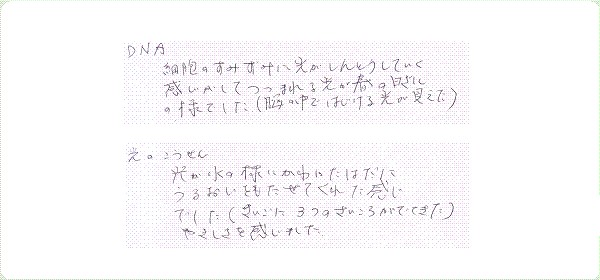 DNA
細胞のすみずみに光がしんとうしていく
感じがしてつつまれる光が春の日ざし
の様でした(脳の中ではじける光が見えた)
光のこうせん
光が水の様にかわいたはだに
うるおいをもたせてくれた感じ
でした(さいごに3つのさいころがでてきた)
やさしさを感じました